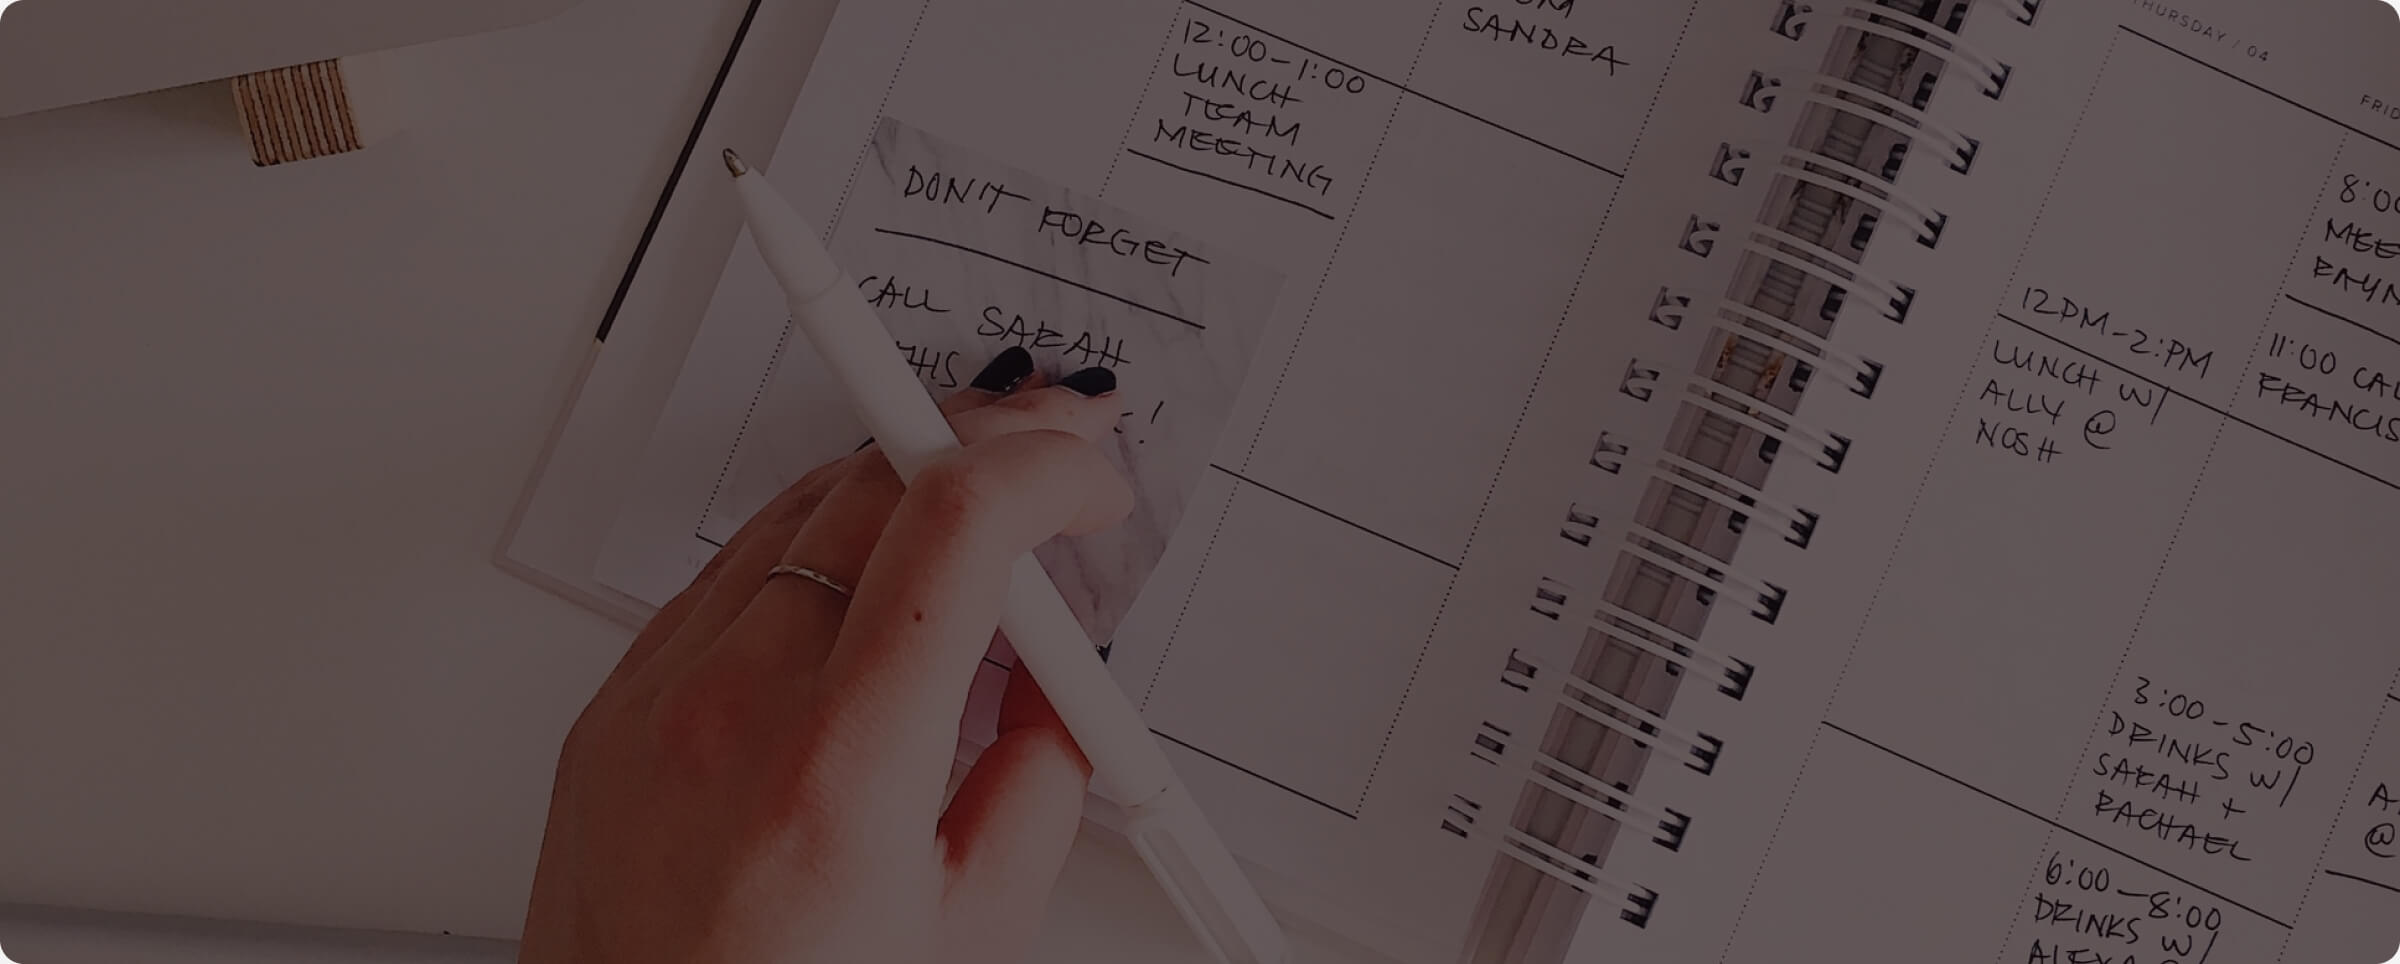 SANDRA
12:00-1:00
LUNCH
TEAM
MEETING
DON'T FORGET
CALL SARAH
THIS
!
THURSDAY / 04
12PM-2:PM
LUNCH W/
ALLY @
NOSH
3:00-5:00
DRINKS W/
SARAH +
RACHAEL
6:00-8:00
DRINKS W/
8:00
11:00
FRANCIS
@